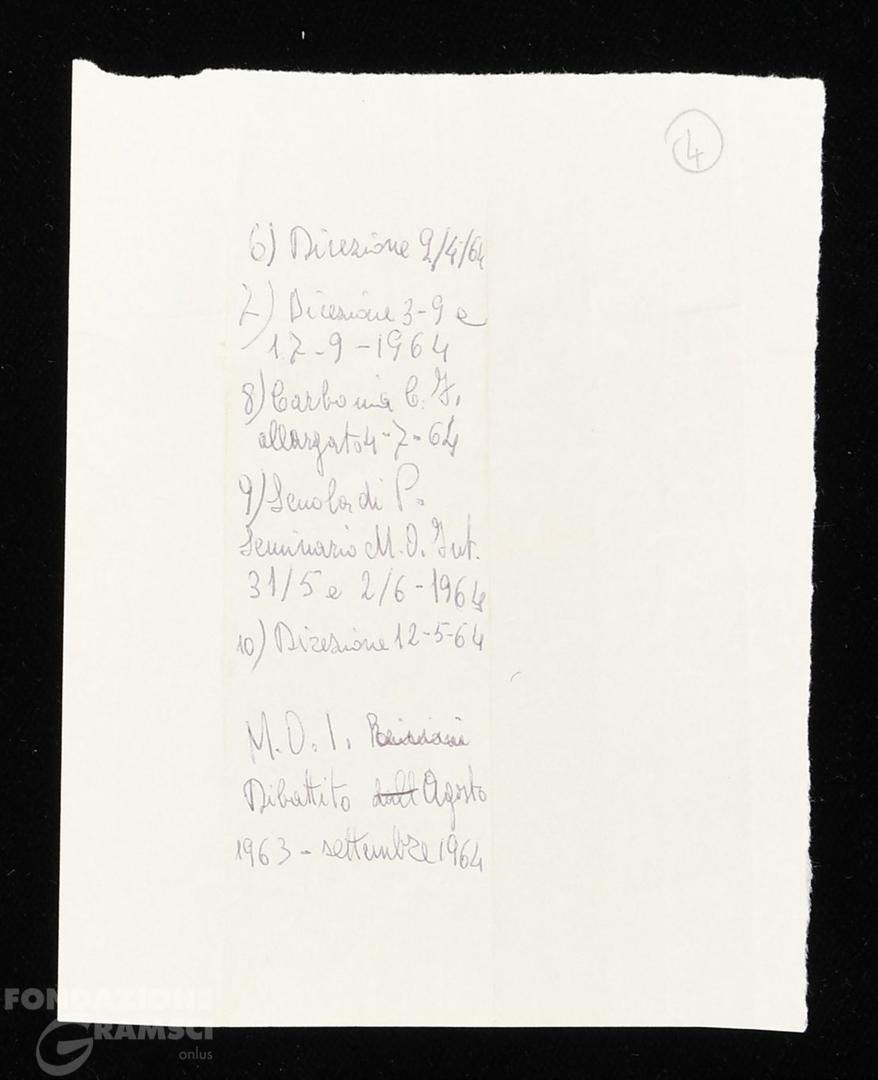 4
6) Direzione 9/4/64
7) Direzione 3-9 e
17-9-1964
8) Carbonia C. F.
allargato 4-7-64
9) Scuola di P.
Seminario M.O. Int.
31/5 e 2/6-1964
10) Direzione 12-5-64
M.O.I.
Dibattito Agosto
1963-settembre 1964
FONDAZIONE
GRAMSCI
onlus